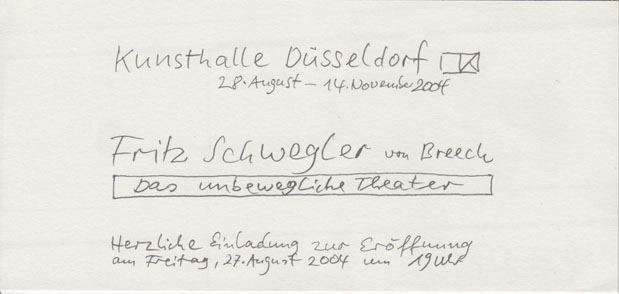 Kunsthalle Düsseldorf
28. August – 14. November 2004
Fritz Schwegler von Breech
Das unbewegliche Theater
Herzliche Einladung zur Eröffnung
am Freitag, 27. August 2004 um 19 Uhr